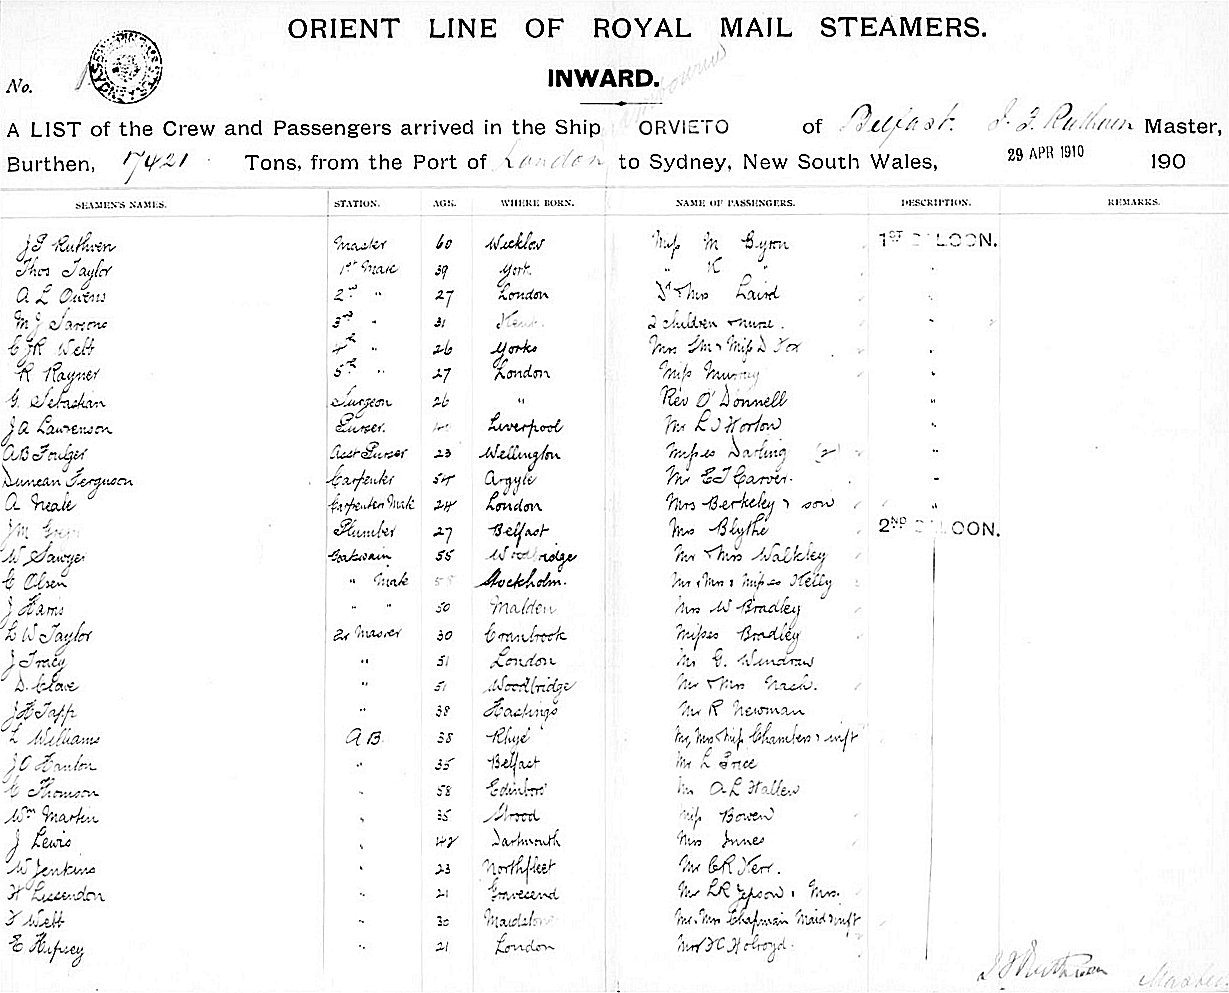 ORIENT LINE OF ROYAL MAIL STEAMERS.
No.
INWARD.
A LIST of the Crew and Passengers arrived in the Ship ORVIETO of Belfast. J. F. Ruthven Master,
Burthen, 17421 Tons, from the Port of London to Sydney, New South Wales, 29 APR 1910 190
SEAMEN'S NAMES. STATION. AGE. WHERE BORN. NAME OF PASSENGERS. DESCRIPTION. REMARKS.
J F Ruthven Master 60 Wicklow Miss M Byron 1ST SALOON.
Thos Taylor 1st Mate 39 York. " K " "
A L Owens 2nd " 27 London Dr & Mrs Laird "
M J Sarsons 3rd " 31 Kent. 2 children & nurse. "
C J R Webb 4th " 26 Yorks Mrs & Miss D Fox "
R Rayner 5th " 27 London Miss Murray "
G. Sebastian Surgeon 26 " Rev O'Donnell "
J A Lawrenson Purser. Liverpool Mr L J Horton "
A B Foulger Asst Purser 23 Wellington Misses Darling (2) "
Duncan Ferguson Carpenter 54 Argyle Mr E J Carver. "
A Neale Carpenters Mate 24 London Mrs Berkeley & son "
J M Plumber 27 Belfast Mrs Blythe 2ND SALOON.
W Sawyer Boatswain 55 Woodbridge Mr & Mrs Walkley
C Olsen " Mate 58 Stockholm. Mr & Mrs & Misses Kelly
J Harris " " 50 Malden Mrs W Bradley
L W Taylor Qr Master 30 Cranbrook Misses Bradley
J Tracy " 51 London Mr G. Windraw
D. Clave " 51 Woodbridge Mr & Mrs Nach.
J H Tapp " 38 Hastings Mr R Newman
L Williams A B 38 Rhye Mr, Mrs & Miss Chambers & inft
J O Hanlon " 35 Belfast Mr L Price
C Thomson " 58 Edinboro' Mr A L Hallen
Wm Martin " 35 Strood Miss Bowen
J Lewis " 42 Dartmouth Mrs Innes
W Jenkins " 23 Northfleet Mr C R Kerr.
H Lissendon " 21 Gravesend Mr L R Jepson & Mrs.
F Webb " 30 Maidstone Mr & Mrs Chapman Maid & inft
E Hipsey " 21 London Mrs H C Holroyd.
J F Ruthven Master